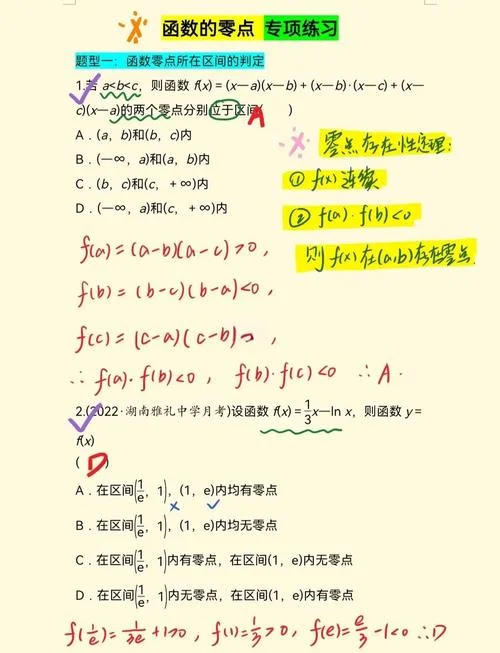 函数的零点 专项练习
题型一：函数零点所在区间的判定
1.若 a<b<c，则函数 f(x)=(x—a)(x—b)+(x—b)·(x—c)+(x—
c)(x—a)的两个零点分别位于区间( A )
A．(a，b)和(b，c)内
B．(—∞，a)和(a，b)内
C．(b，c)和(c，+∞)内
D．(—∞，a)和(c，+∞)内
零点存在性定理：
① f(x) 连续
② f(a)·f(b)<0
则 f(x) 在(a,b)存在零点.
f(a)=(a-b)(a-c)>0，
f(b)=(b-c)(b-a)<0，
f(c)=(c-a)(c-b)>0，
∴ f(a)·f(b)<0， f(b)·f(c)<0 ∴A.
2.(2022·湖南雅礼中学月考)设函数 f(x)=1/3x—ln x，则函数 y=
f(x)
( D )
A．在区间(1/e，1)，(1，e)内均有零点
B．在区间(1/e，1)，(1，e)内均无零点
C．在区间(1/e，1)内有零点，在区间(1，e)内无零点
D．在区间(1/e，1)内无零点，在区间(1，e)内有零点
f(1/e)=1/3e+1>0，f(1)=1/3>0，f(e)=e/3-1<0 ∴D